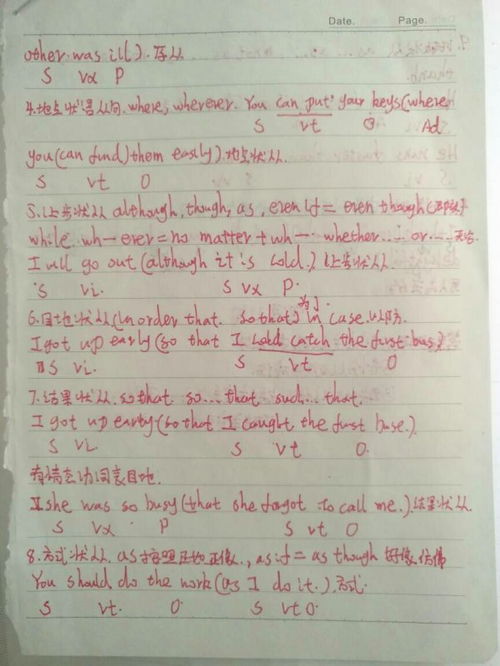 Date.      Page.
other was ill). 存从
S Vx P
4.地点状语从句. where, wherever. You can put your keys (where
S Vt O Ad
you (can find) them easily). 地点状从.
S Vt O
5.让步状从 although, though, as, even if = even though (即使)
while wh-ever = no matter + wh-. whether... or.... 无论
I will go out (although it's cold.) 让步状从
S Vi. S Vx P.
6.目地状从 (in order that. so that) 为了. in case. 以防.
I got up early (so that I cold catch the first bus.)
S Vi. S Vt O
7.结果状从. so that. so... that. such... that.
I got up early (so that I caught the first buse.)
S Vi. S Vt O.
有情态动词表目地.
she was so busy (that she forgot to call me.) 结果状从.
S Vx P S Vt O
8.方式状从. as 按照 正如 正像., as if = as though 好像 仿佛
You should do the work (as I do it.). 方式.
S Vt. O. S Vt O.